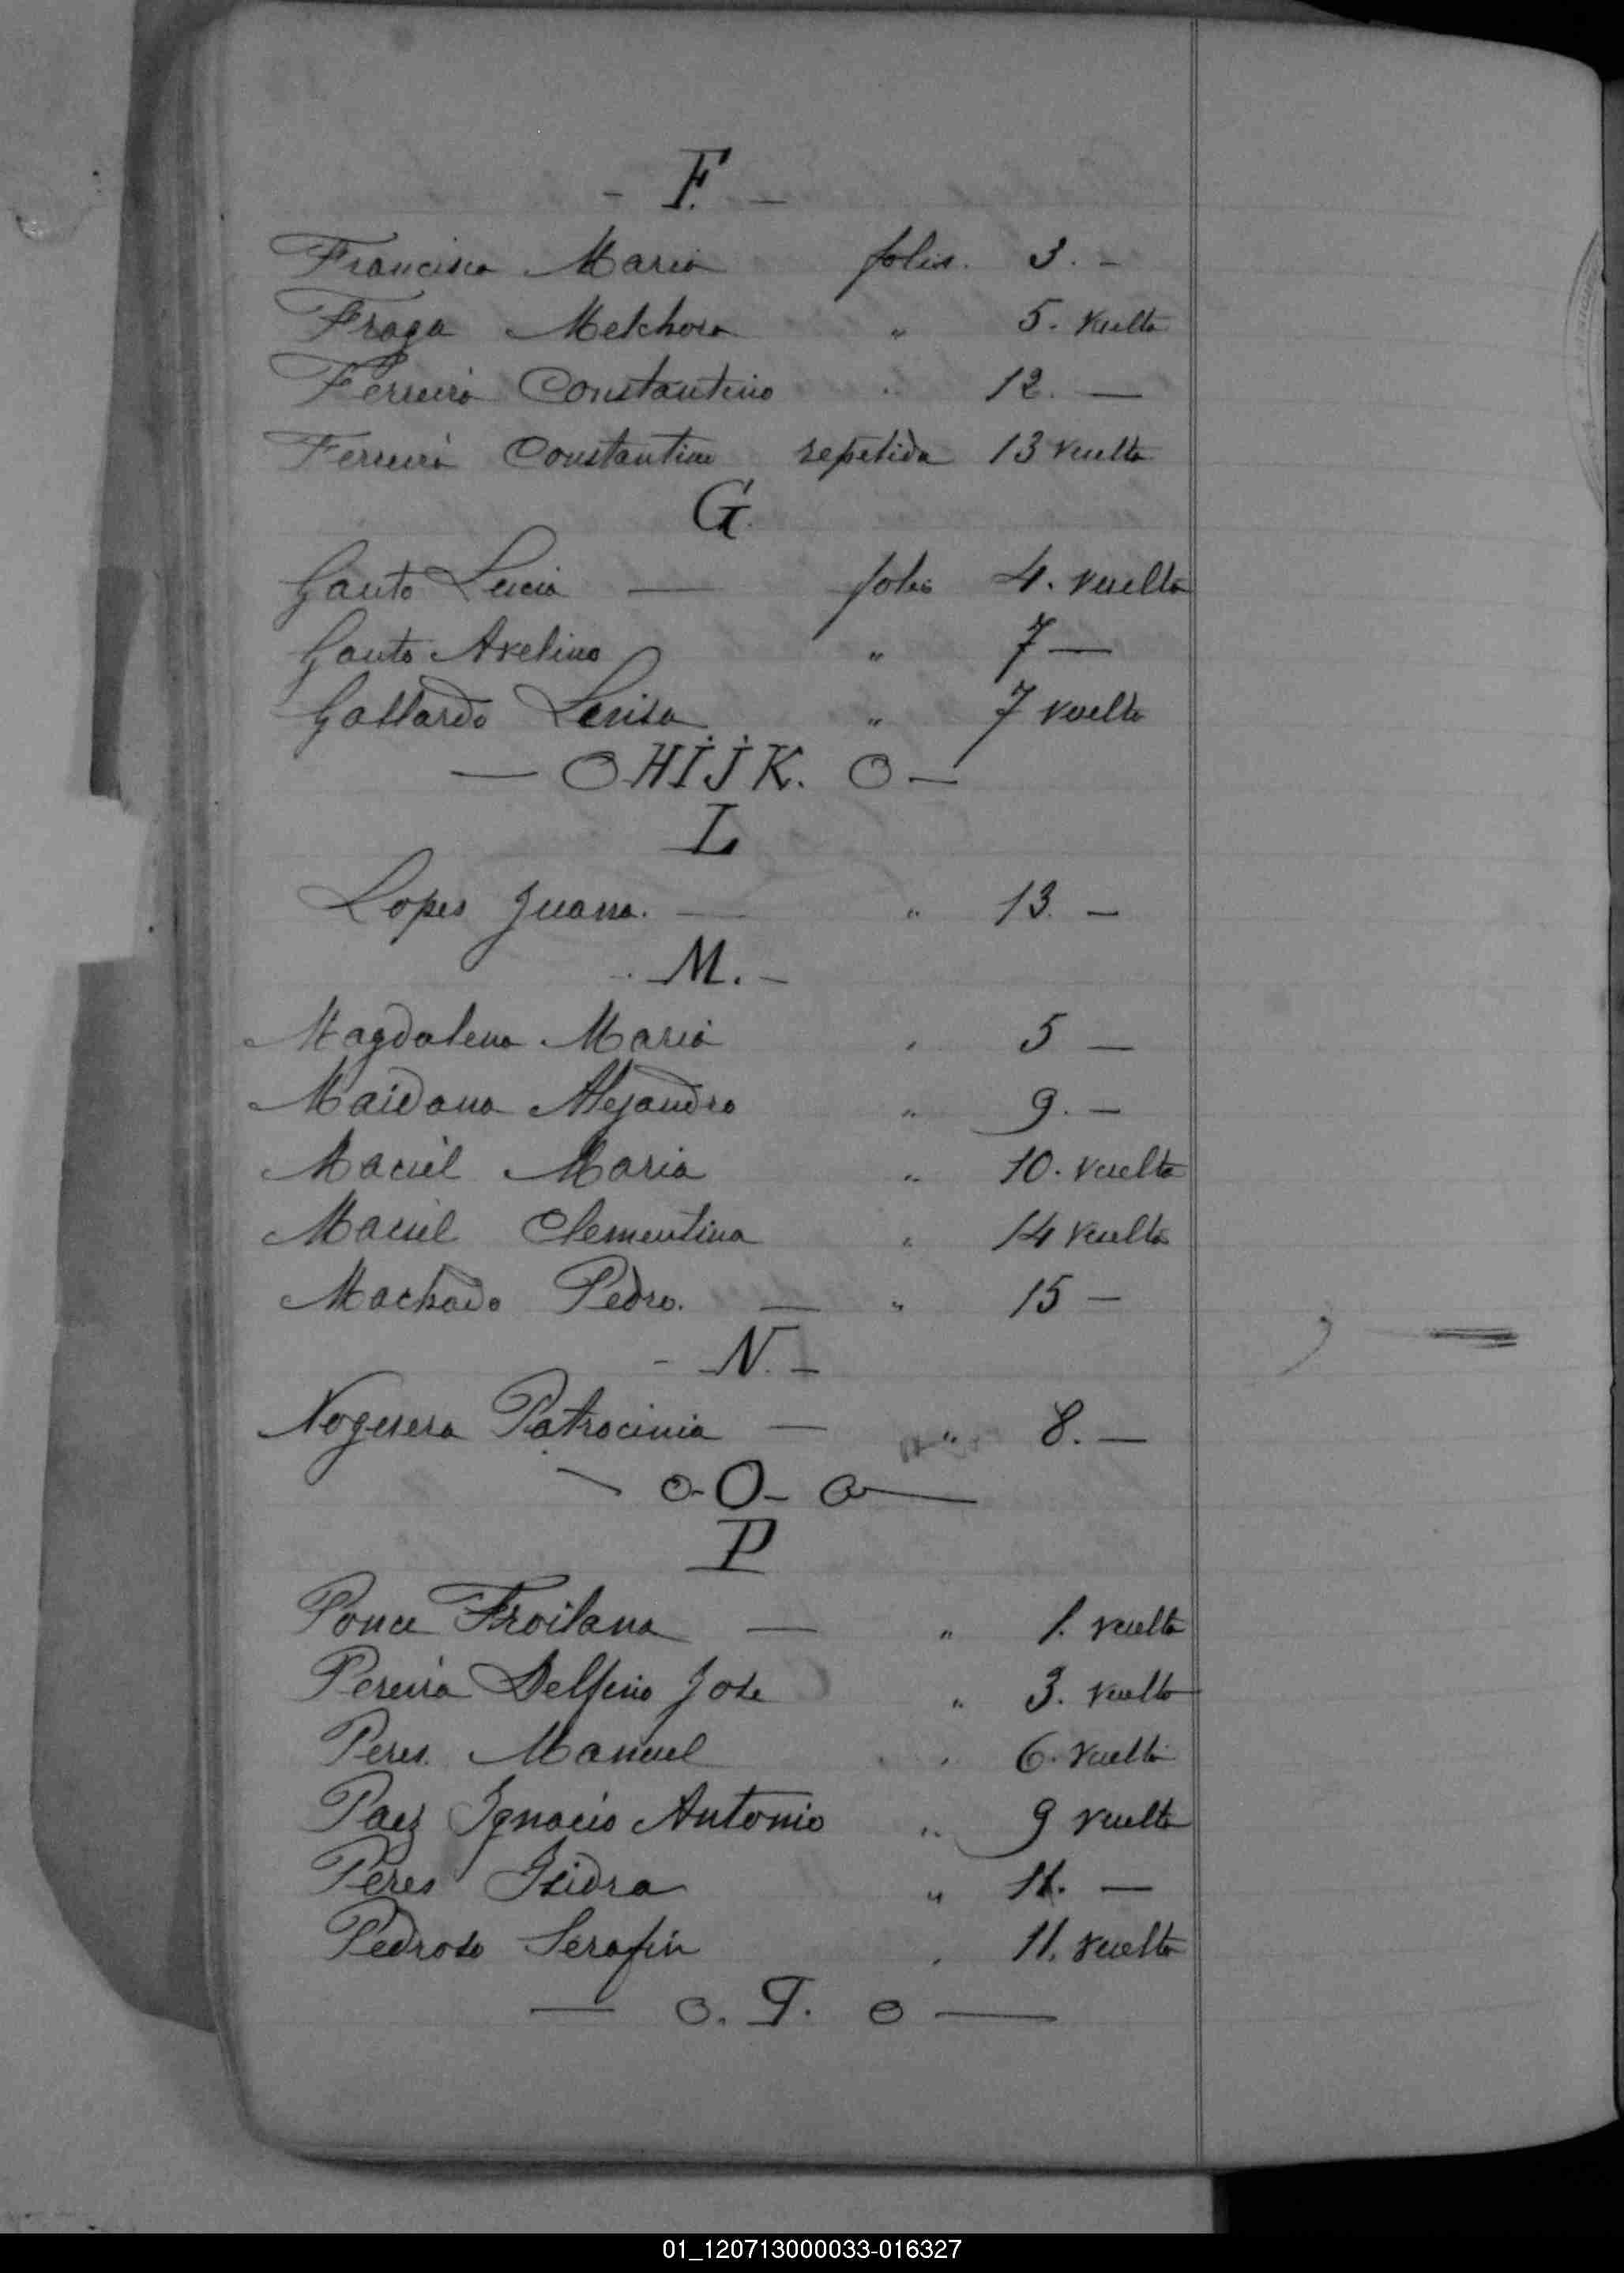 - F. -
Francisca Maria folio. 3. -
Fraga Melchora " 5. vuelta
Ferreira Constantino " 12. —
Ferreira Constantino repetida 13 vuelta
G.
Gauto Lucia — folio 4. vuelta
Gauto Avelino " 7 —
Gallardo Luisa " 7 vuelta
— O HIJK. O —
L
Lopes Juana. — " 13. —
. M. -
Magdalena Maria " 5 —
Maidana Alejandro " 9. —
Maciel Maria " 10. vuelta
Maciel Clementina " 14 vuelta
Machado Pedro. — " 15 —
- N. -
Noguera Patrocinia — " 8. —
— o - O - o —
P
Ponce Froilana — " 1. vuelta
Pereira Delfino Jose " 3. vuelta
Peres Manuel " 6. vuelta
Paez Ignacio Antonio " 9 vuelta
Peres Isidra " 11. —
Pedroso Serafin " 11. vuelta
— o. Q. o —
01_120713000033-016327